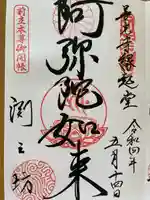 善光寺縁起堂
令和四年
五月十四日
阿弥陀如来
前立本尊御開帳
渕之坊